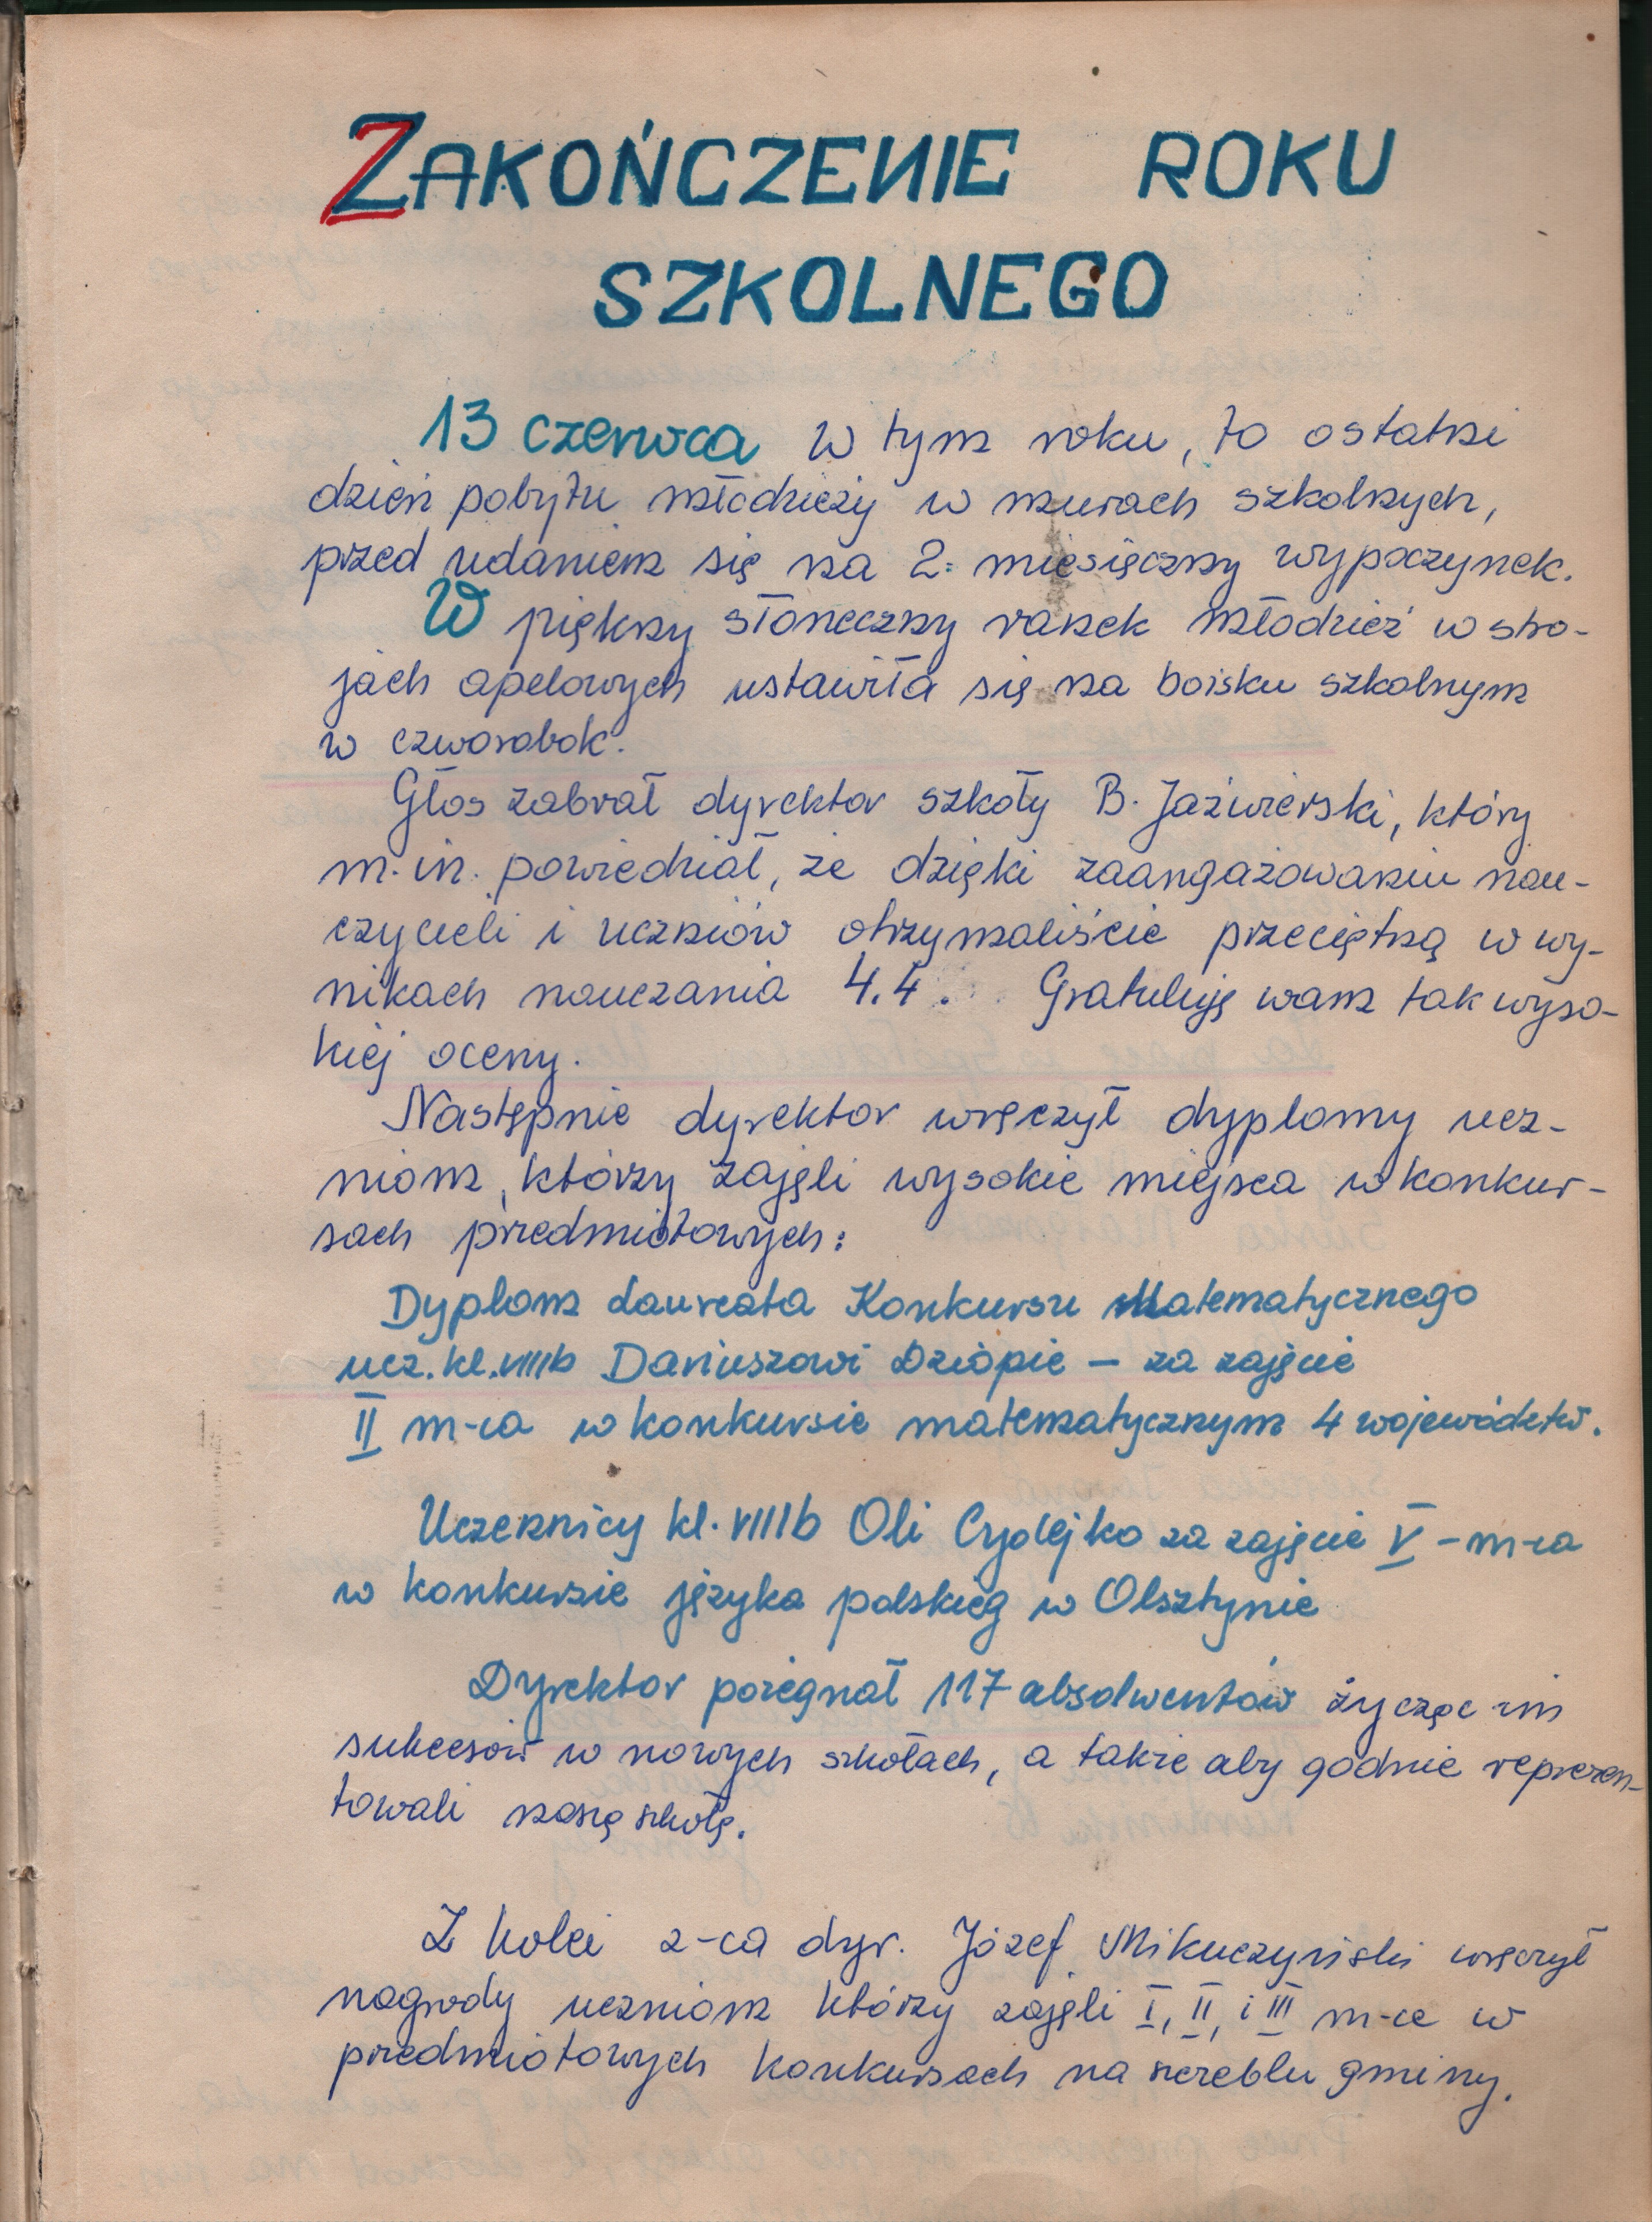 ZAKOŃCZENIE ROKU
SZKOLNEGO
13 czerwca w tym roku, to ostatni
dzień pobytu młodzieży w murach szkolnych,
przed udaniem się na 2= miesięczny wypoczynek.
W piękny słoneczny ranek młodzież w stro-
jach apelowych ustawiła się na boisku szkolnym
w czworobok.
Głos zabrał dyrektor szkoły B. Jaźwierski, który
m.in. powiedział, że dzięki zaangażowaniu nau-
czycieli i uczniów otrzymaliście przeciętną w wy-
nikach nauczania 4.4. Gratuluję wam tak wyso-
kiej oceny.
Następnie dyrektor wręczył dyplomy ucz-
niom, którzy zajęli wysokie miejsca w konkur-
sach przedmiotowych:
Dyplom Laureata Konkursu Matematycznego
ucz. kl. VIIIb Dariuszowi Dziopie – za zajęcie
II m-ca w konkursie matematycznym 4 województw.
Uczennicy kl. VIIIb Oli Cydejko za zajęcie V - m-ca
w konkursie języka polskieg w Olsztynie
Dyrektor pożegnał 117 absolwentów życząc im
sukcesów w nowych szkołach, a także aby godnie reprezen-
towali naszą szkołę.
Z kolei z-ca dyr. Józef Mikuczyński wręczył
nagrody uczniom którzy zajęli I, II, i III m-ce w
przedmiotowych konkursach na szczeblu gminy.